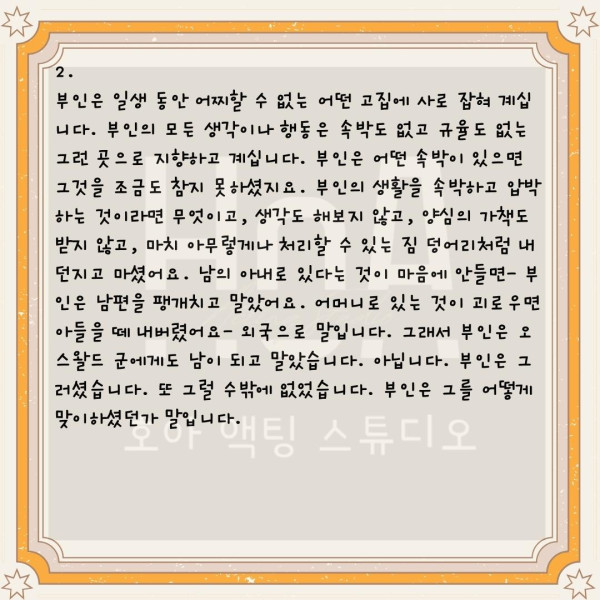 2.
부인은 일생 동안 어찌할 수 없는 어떤 고집에 사로 잡혀 계십
니다. 부인의 모든 생각이나 행동은 속박도 없고 규율도 없는
그런 곳으로 지향하고 계십니다. 부인은 어떤 속박이 있으면
그것을 조금도 참지 못하셨지요. 부인의 생활을 속박하고 압박
하는 것이라면 무엇이고, 생각도 해보지 않고, 양심의 가책도
받지 않고, 마치 아무렇게나 처리할 수 있는 짐 덩어리처럼 내
던지고 마셨어요. 남의 아내로 있다는 것이 마음에 안들면- 부
인은 남편을 팽개치고 말았어요. 어머니로 있는 것이 괴로우면
아들을 떼 내버렸어요- 외국으로 말입니다. 그래서 부인은 오
스왈드 군에게도 남이 되고 말았습니다. 아닙니다. 부인은 그
러셨습니다. 또 그럴 수밖에 없었습니다. 부인은 그를 어떻게
맞이하셨던가 말입니다.
HoA
호아 액팅 스튜디오